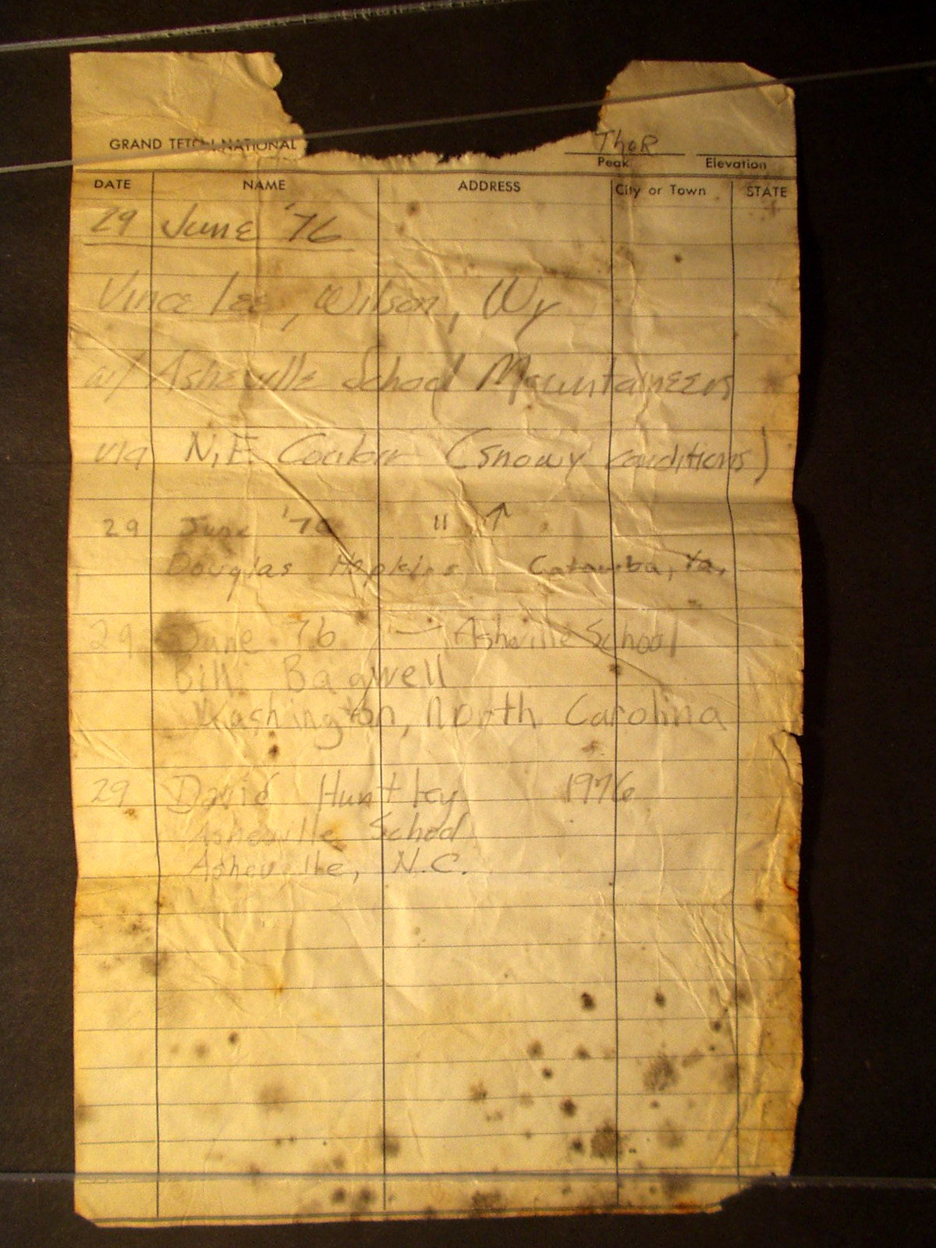 GRAND TETON NATIONAL
ThoR
Peak Elevation
DATE NAME ADDRESS City or Town STATE
29 June '76
Vince Lee, Wilson, Wy
w/ Asheville School Mountaineers
via N.E. Couloir (snowy conditions)
29 June '76 " ↑
Douglas Hopkins Catawba, Va.
29 June 76 — Asheville School
Bill Bagwell
Washington, North Carolina
29 David Huntley 1976
Asheville School
Asheville, N.C.